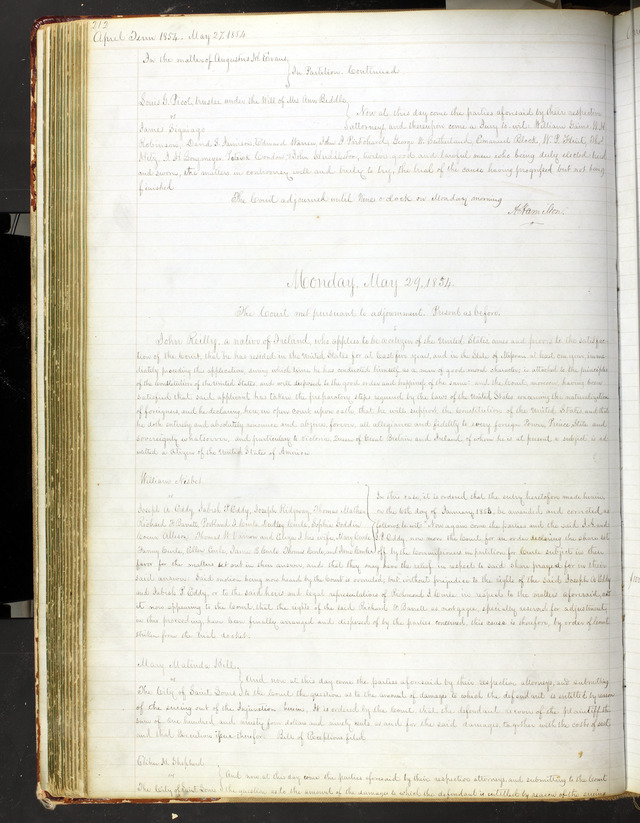 212
April Term 1854. May 27, 1854
In the matter of Augustus H. Evans
In Partition. Continued
Louis G. Picot, trustee under the Will of Mrs Ann Biddle
vs
James
Now at this day come the parties aforesaid by their respective
Attorneys and thereupon come a Jury to wit: William
Robinson, David G. Warren, John George W. Sutherland, Emanuel Block, W. P.
twelve good and lawful men who being duly elected tried
and sworn, the matters in controversy well and truly to try, the trial of the cause having progressed but not being
finished
The Court adjourned until Nine o'clock on Monday morning
A. Hamilton
Monday, May 29, 1854.
The Court met pursuant to adjournment. Present as before
John Reilly, a native of Ireland, who applies to be a citizen of the United States comes and proves to the satisfac-
tion of the Court, that he has resided in the United States for at least five years, and in the State of Missouri at least one year imme-
diately preceding this application, during which time he has conducted himself as a man of good moral character, is attached to the principles
of the Constitution of the United States and well disposed to the good order and happiness of the same: and the Court, moreover having been
satisfied that said applicant has taken the preparatory steps required by the laws of the United States concerning the naturalization
of foreigners, and he declaring here, in open Court upon oath that he will support the Constitution of the United States and that
he doth entirely and absolutely renounce and abjure forever all allegiance and fidelity to every foreign Power, Prince State and
sovereignty whatsoever and particularly to Victoria Queen of Great Britain and Ireland, of whom he is at present a subject is ad-
mitted a citizen of the United States of America
William Nisbet
vs
Joseph A. Eddy, Tabiah P. Eddy, Joseph Ridgway, Thomas Mather
Richard F. Barrett, Portland J. Curle, Dudley Curle, Sophia
Allison, Thomas W. and Eliza J. his wife, Mary Curle
Fanny Curle, Curle Thomas Curle, and Curle
In this case, it is ordered that the entry heretofore made herein
on the 6th day of January 1854, be amended and corrected as
follows to wit: "Now again come the parties and the said J. A. and
J. P. Eddy, now move the Court for an order declaring the share set
off by the Commissioners in partition for Curle subject in their
favor for the matters set out in their answer, and that they may have the relief in respect to said share prayed for in their
said answer. Said motion being now heard by the Court is overruled, but without prejudice to the rights of the said Joseph A. Eddy
and Tabiah P. Eddy, or to the said heirs and legal representatives of Richmond J. Curle in respects to the matters aforesaid, and
it now appearing to the Court, that the rights of the said Richard F. Barrett as mortgagee, specially reserved for adjustment
in this proceeding, have been finally arranged and disposed of by the parties concerned, this cause is therefore, by order of Court
stricken from the trial docket.
Mary Malinda
vs
The City of Saint Louis
And now at this day come the parties aforesaid by their respective attorneys, and submitting
to the Court the question as to the amount of damages to which the defendant is entitled by reason
of the suing out of the Injunction herein, It is ordered by the Court that the defendant recover of the plaintiff the
sum of one hundred and ninety four dollars and ninety cents as and for the said damages together with the costs of suit
and that Execution issue therefor. Bill of Exceptions filed
Elihu H. Shepherd
vs
The City of Saint Louis
And now at this day come the parties aforesaid by their respective attorneys and submitting to the Court
the question as to the amount of the damages to which the defendant is entitled by reason of the suing